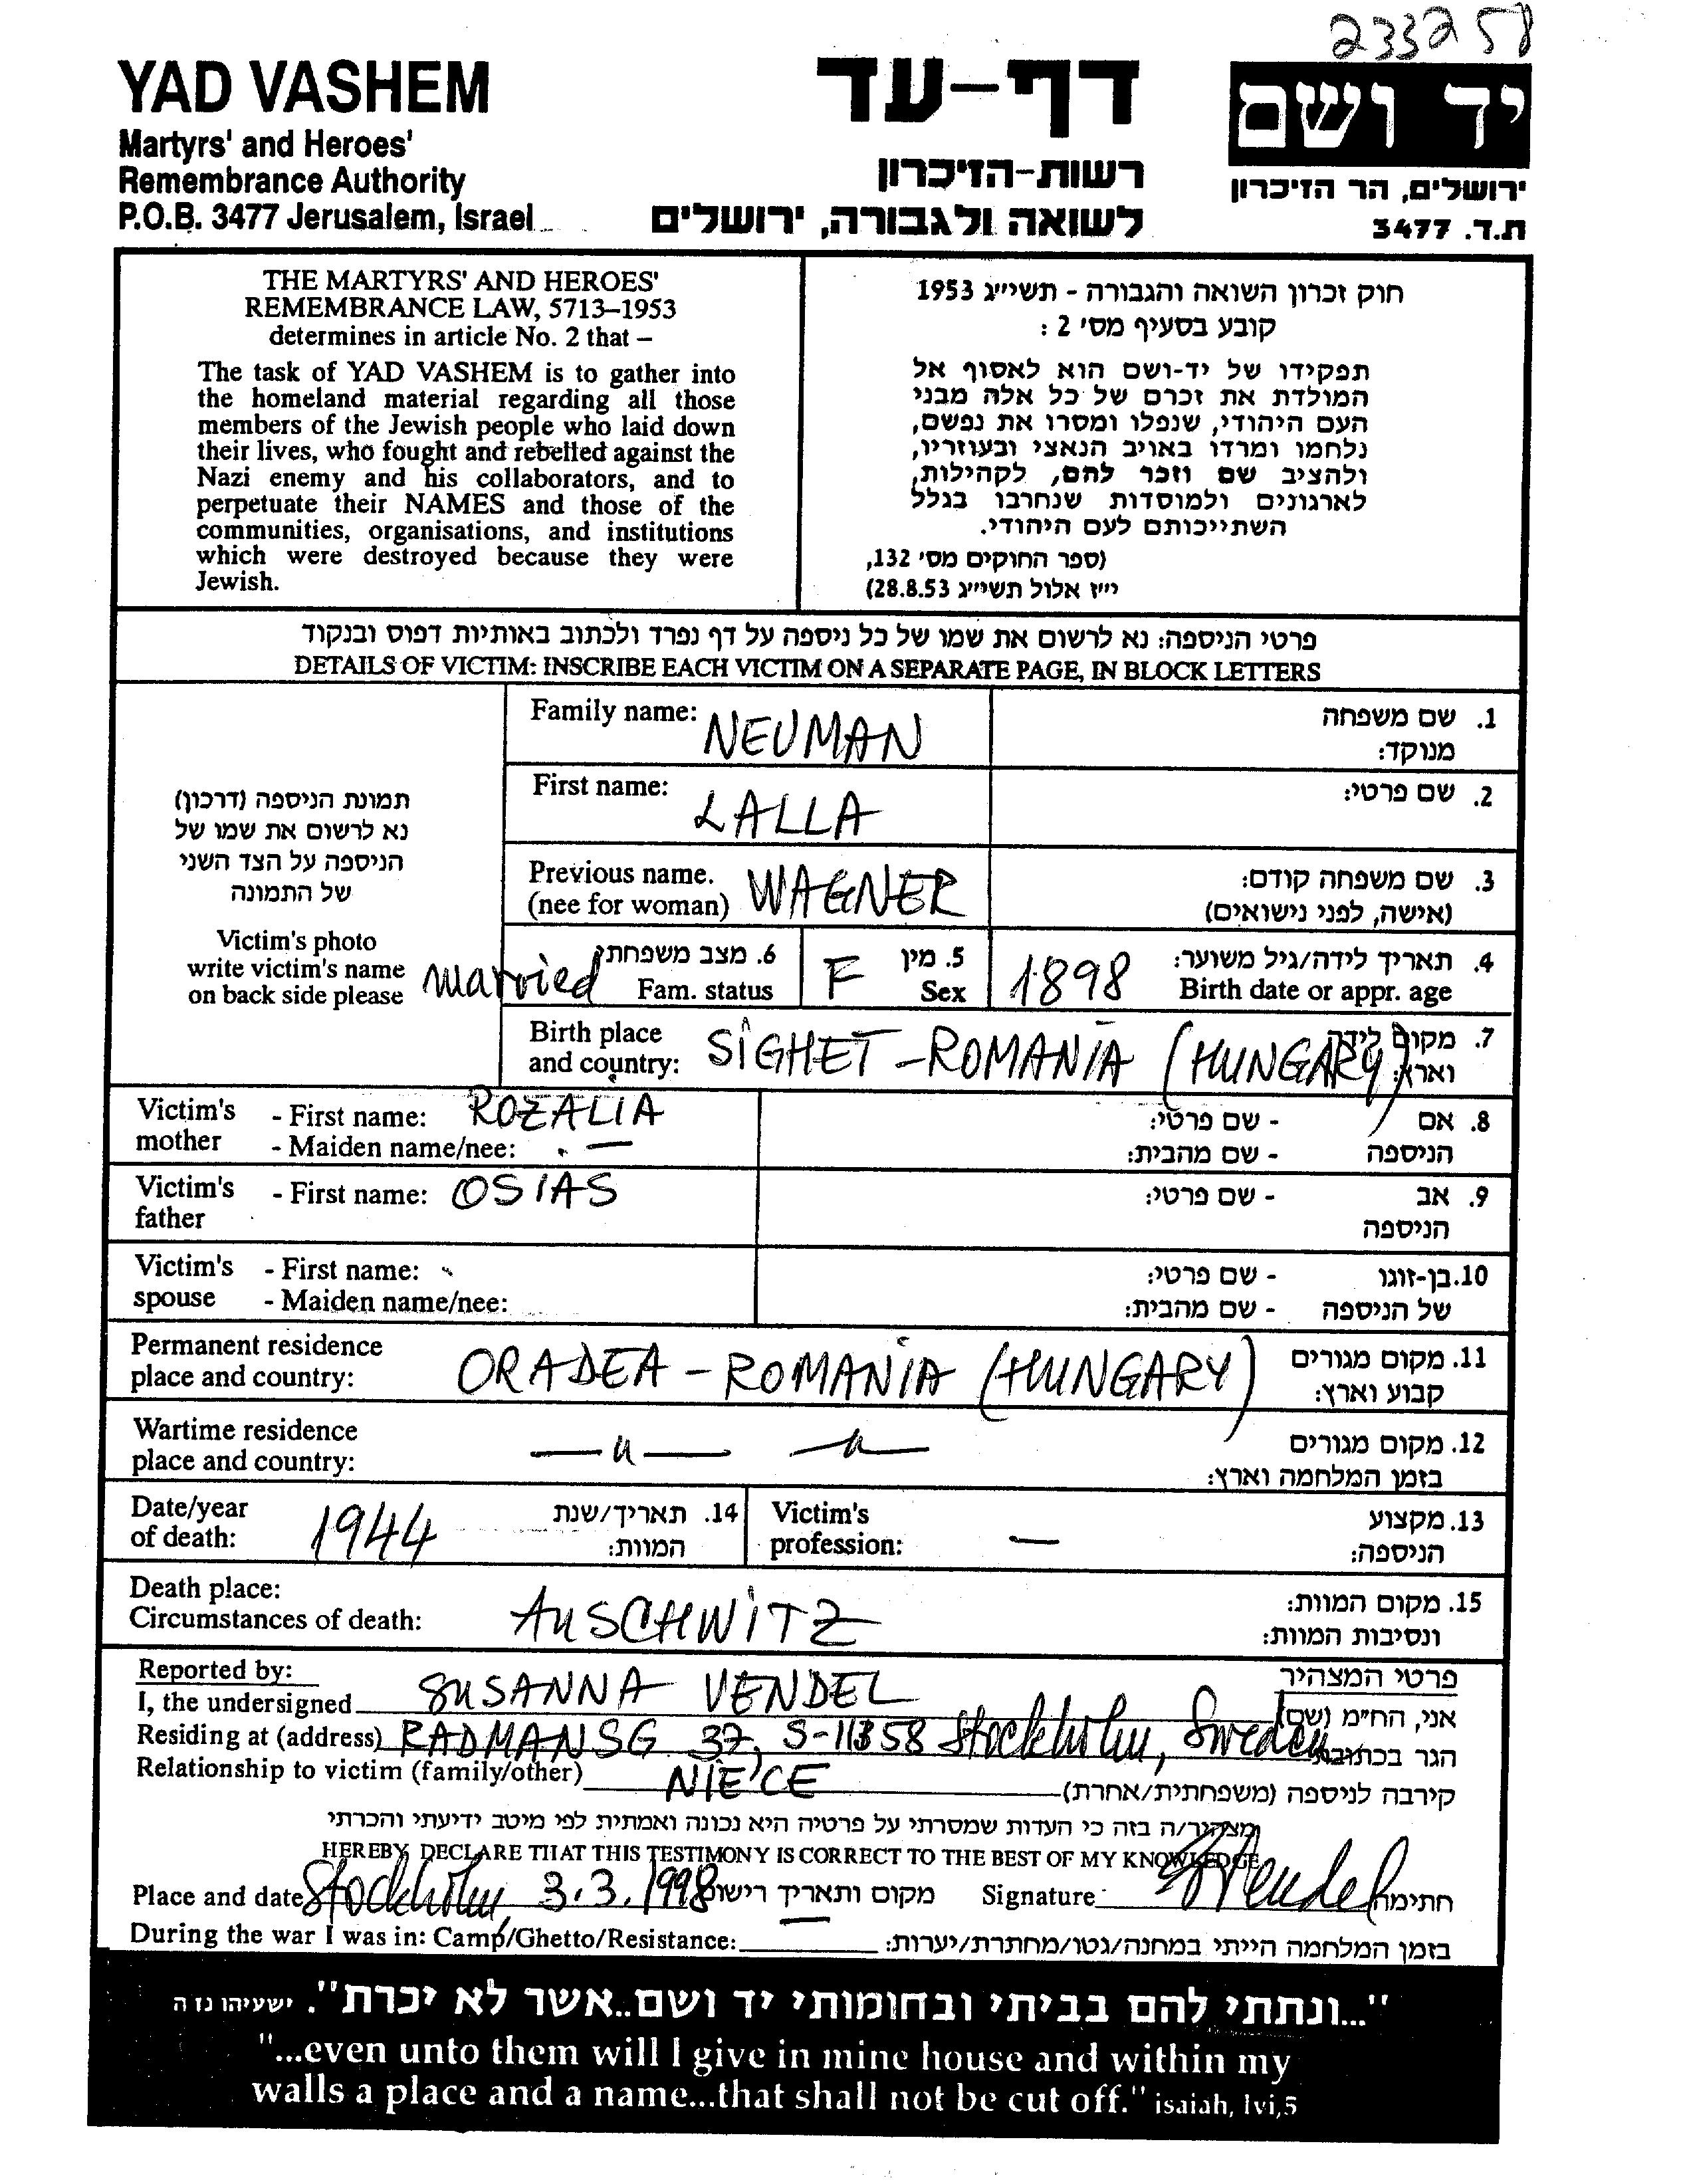 233258
YAD VASHEM
Martyrs' and Heroes'
Remembrance Authority
P.O.B. 3477 Jerusalem, Israel
דף-עד
רשות-הזיכרון
לשואה ולגבורה, ירושלים
יד ושם
ירושלים, הר הזיכרון
ת.ד. 3477
THE MARTYRS' AND HEROES'
REMEMBRANCE LAW, 5713–1953
determines in article No. 2 that –
The task of YAD VASHEM is to gather into
the homeland material regarding all those
members of the Jewish people who laid down
their lives, who fought and rebelled against the
Nazi enemy and his collaborators, and to
perpetuate their NAMES and those of the
communities, organisations, and institutions
which were destroyed because they were
Jewish.
חוק זכרון השואה והגבורה - תשי״ג 1953
קובע בסעיף מס׳ 2 :
תפקידו של יד-ושם הוא לאסוף אל
המולדת את זכרם של כל אלה מבני
העם היהודי, שנפלו ומסרו את נפשם,
נלחמו ומרדו באויב הנאצי ובעוזריו,
ולהציב שם וזכר להם, לקהילות,
לארגונים ולמוסדות שנחרבו בגלל
השתייכותם לעם היהודי.
(ספר החוקים מס׳ 132,
י״ז אלול תשי״ג 28.8.53)
פרטי הניספה: נא לרשום את שמו של כל ניספה על דף נפרד ולכתוב באותיות דפוס ובנקוד
DETAILS OF VICTIM: INSCRIBE EACH VICTIM ON A SEPARATE PAGE, IN BLOCK LETTERS
תמונת הניספה (דרכון)
נא לרשום את שמו של
הניספה על הצד השני
של התמונה
Victim's photo
write victim's name
on back side please
Family name: NEUMAN 1. שם משפחה
מנוקד:
First name: LALLA 2. שם פרטי:
Previous name. WAGNER 3. שם משפחה קודם:
(nee for woman) (אישה, לפני נישואים)
married 6. מצב משפחתי F 5. מין 1898 4. תאריך לידה/גיל משוער:
Fam. status Sex Birth date or appr. age
Birth place SIGHET - ROMANIA (HUNGARY) 7. מקום לידה
and country: וארץ:
Victim's - First name: ROZALIA - שם פרטי: 8. אם
mother - Maiden name/nee: — - שם מהבית: הניספה
Victim's - First name: OSIAS - שם פרטי: 9. אב
father הניספה
Victim's - First name: - שם פרטי: 10. בן-זוגו
spouse - Maiden name/nee: - שם מהבית: של הניספה
Permanent residence ORADEA - ROMANIA (HUNGARY) 11. מקום מגורים
place and country: קבוע וארץ:
Wartime residence —"— —"— 12. מקום מגורים
place and country: בזמן המלחמה וארץ:
Date/year 1944 14. תאריך/שנת Victim's — 13. מקצוע
of death: המוות: profession: הניספה:
Death place: AUSCHWITZ 15. מקום המוות:
Circumstances of death: ונסיבות המוות:
Reported by: פרטי המצהיר
I, the undersigned SUSANNA VENDEL אני, הח״מ (שם)
Residing at (address) RADMANSG 37, S-11358 Stockholm, Sweden הגר בכתובת
Relationship to victim (family/other) NIECE קירבה לניספה (משפחתית/אחרת)
מצהיר/ה בזה כי העדות שמסרתי על פרטיה היא נכונה ואמתית לפי מיטב ידיעתי והכרתי
HEREBY DECLARE THAT THIS TESTIMONY IS CORRECT TO THE BEST OF MY KNOWLEDGE
Place and date Stockholm 3.3.1998 מקום ותאריך רישום Signature: SVendel חתימה
During the war I was in: Camp/Ghetto/Resistance: — בזמן המלחמה הייתי במחנה/גטו/מחתרת/יערות:
"...ונתתי להם בביתי ובחומותי יד ושם..אשר לא יכרת". ישעיהו נו ה
"...even unto them will I give in mine house and within my
walls a place and a name...that shall not be cut off." isaiah, lvi,5